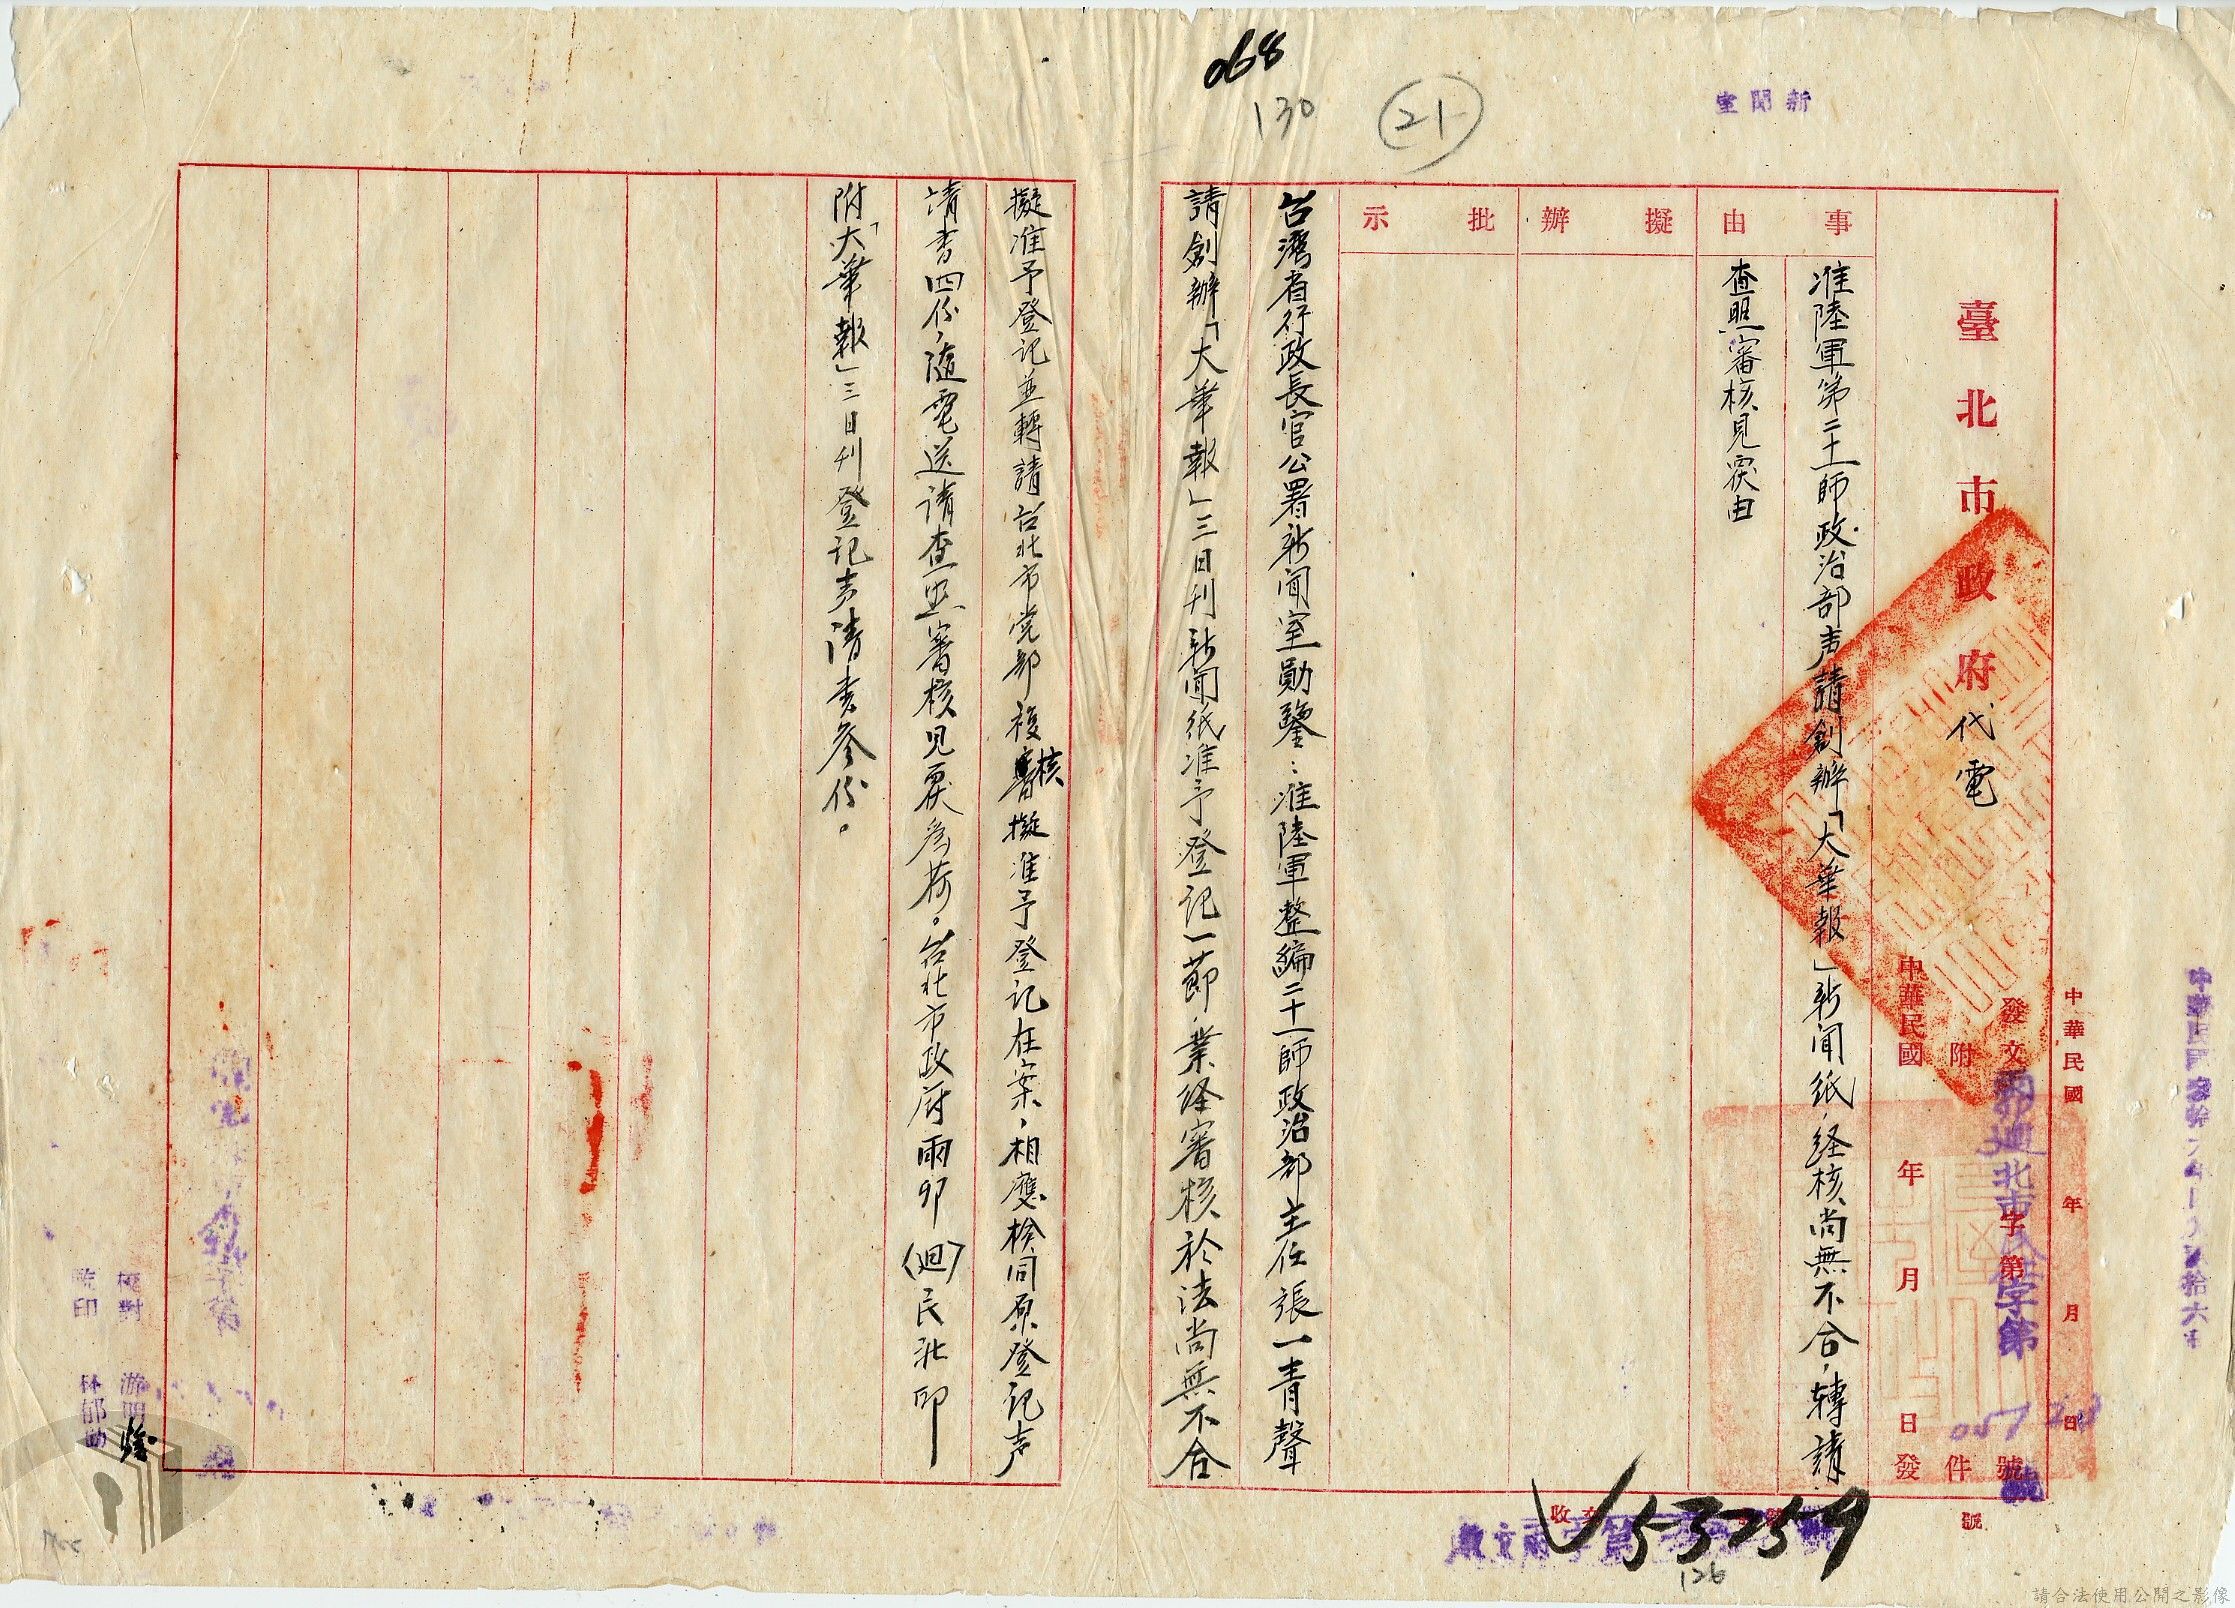 068
130
21
新聞室
臺北市政府代電
發文
字第
號
附
件
中華民國
年
月
日發
中華民國
年
月
日
雨卯迴北市民字第
號
事由
擬辦
批示
准陸軍第二十一師政治部声請創辦「大華報」新聞紙，経核尚無不合，轉請
查照審核見复由
台灣省行政長官公署新聞室勛鑒：准陸軍整編二十一師政治部主任張一青聲
請創辦「大華報」三日刊新聞紙准予登记一節，業经審核於法尚無不合
擬准予登记並轉請台北市党部複核擬准予登记在案，相應检同原登记声
请書四份，随電送请查照審核見复為荷。台北市政府雨卯（迴）民北印
附「大華報」三日刊登记声请書叁份。
校對
监印
林郁
收文
號
53259
126
請合法使用公開之影像